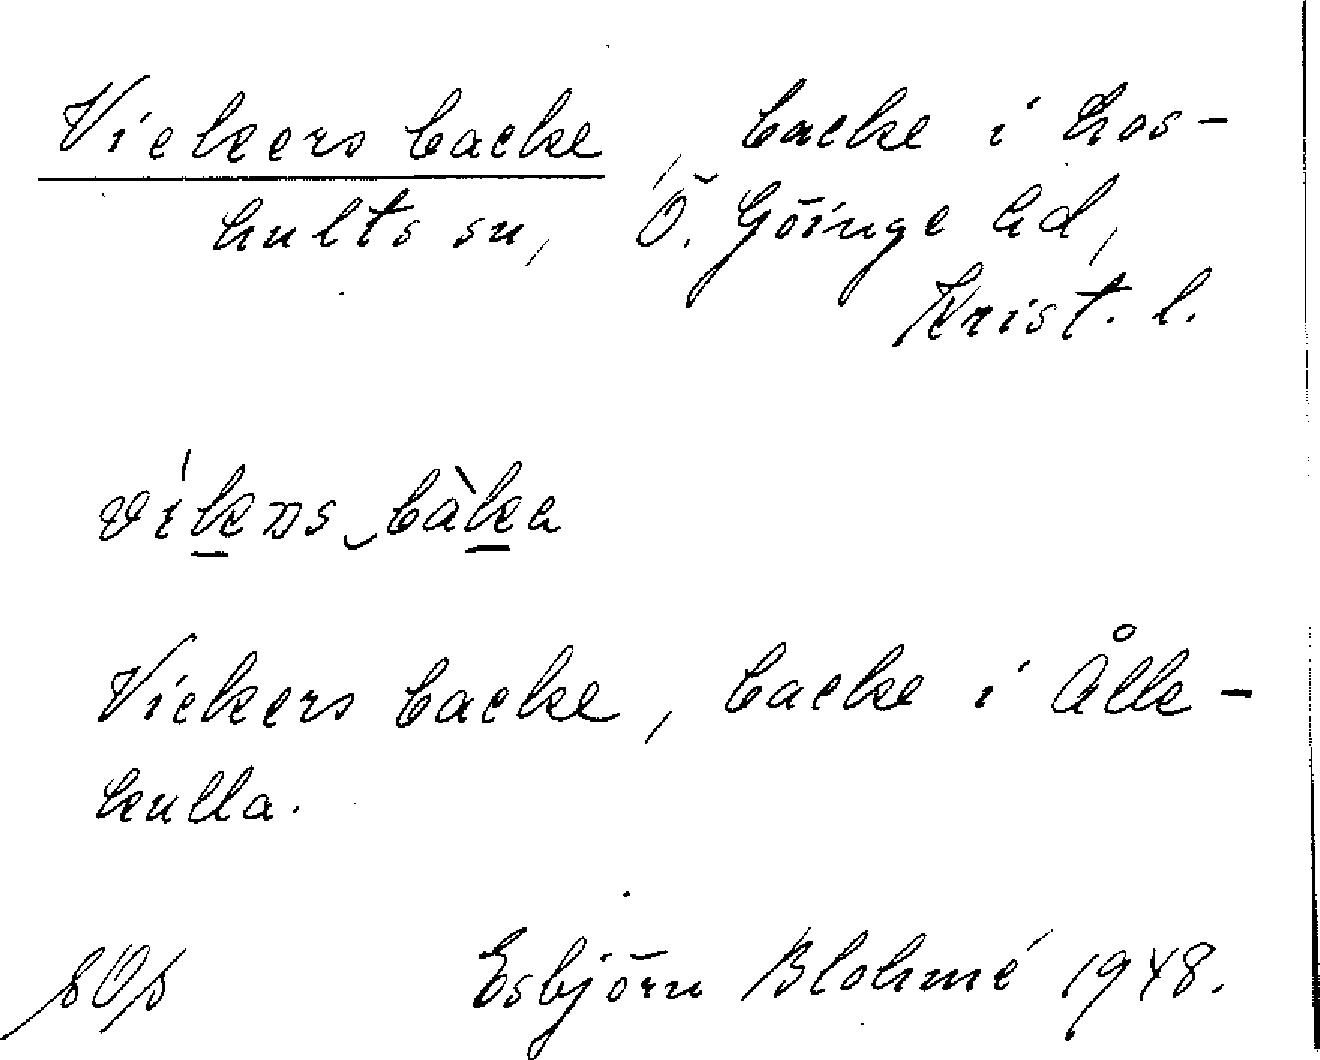 Vickers backe, backe i Los-
hults sn, Ö. Göinge hd,
Krist. l.
Vickers backe, backe i Ålle-
kulla.
Esbjörn Blohmé 1948.